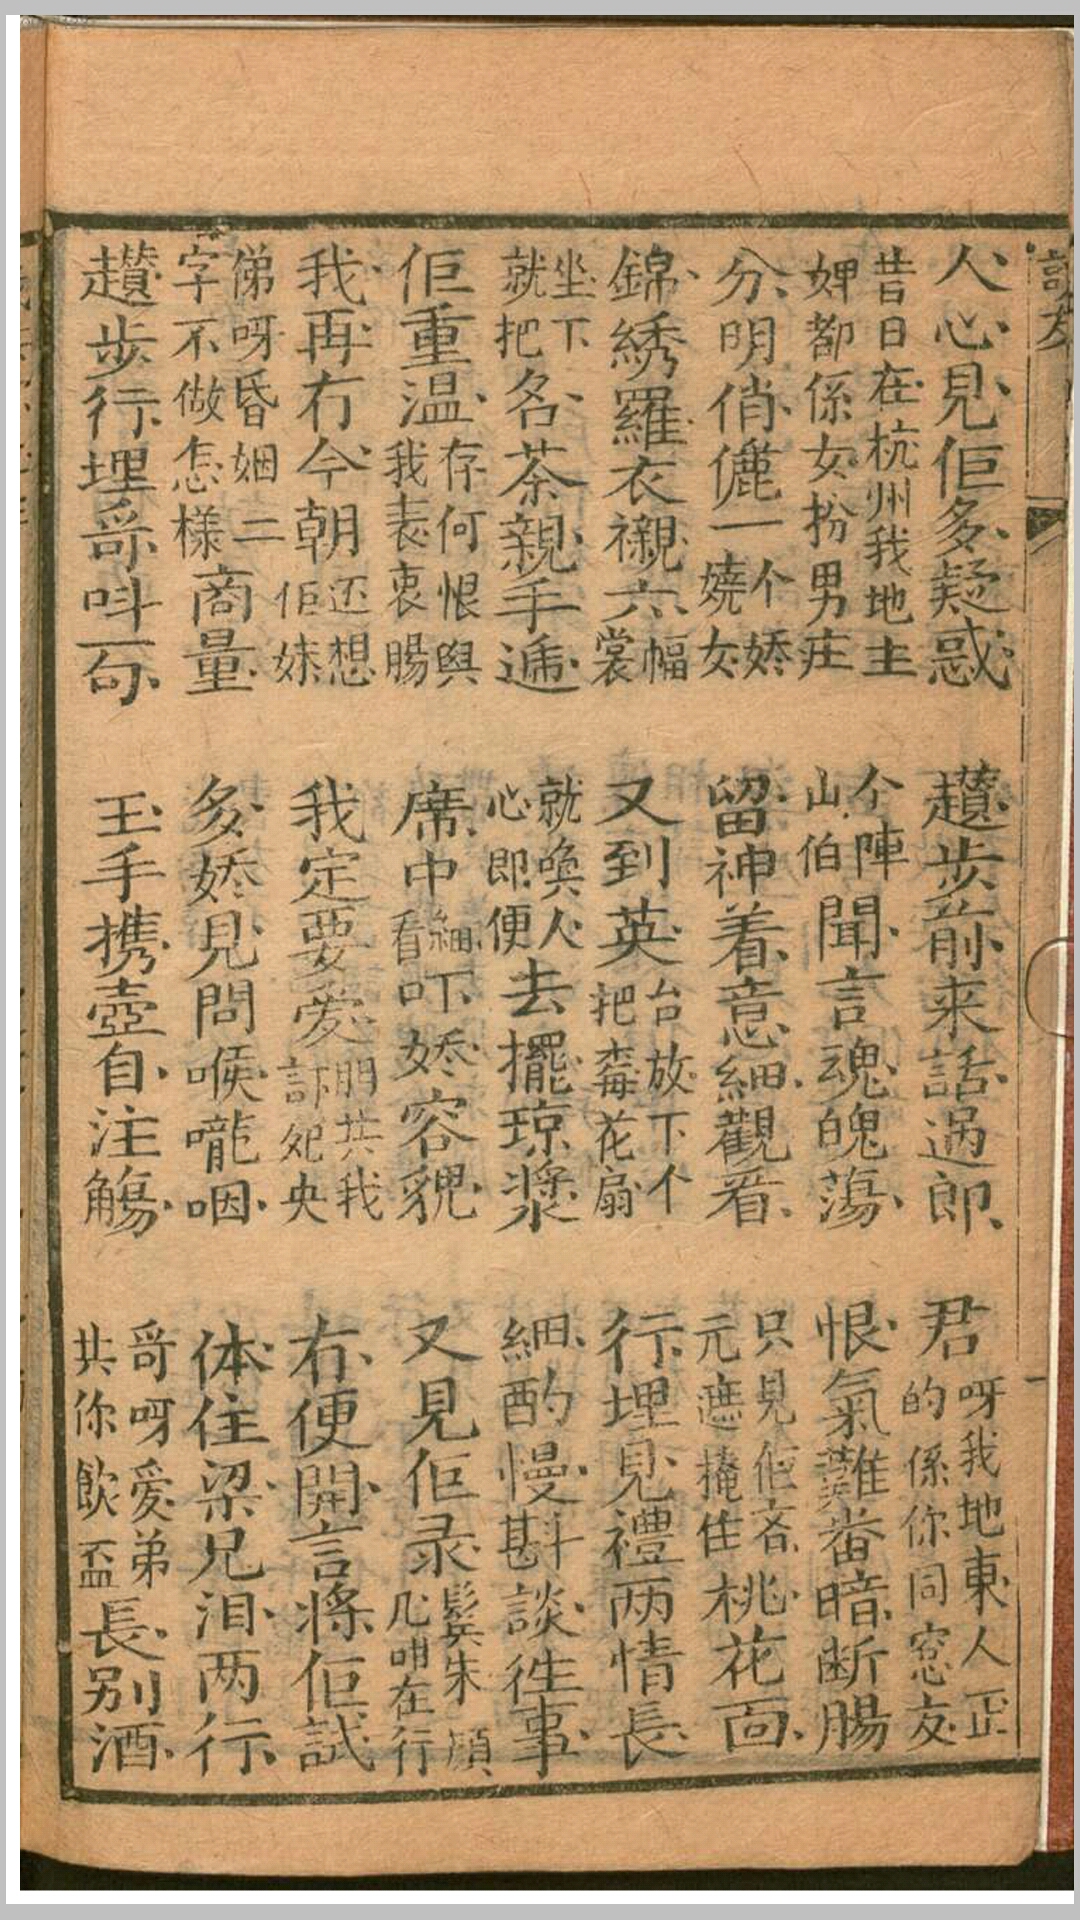 訪友
人心見佢多疑惑
趲步前来話過郎
君呀我地東人正的係你同窓友
昔日在杭州我地主婢都係女扮男庄
个陣山伯聞言魂魄蕩
恨氣難番暗断腸
分明俏儷一个娇嬈女
留神着意細觀看
只見佢吝元遮掩住桃花面
錦綉羅衣襯六幅裳
又到英台放下个把毒花扇
行埋見禮两情長
坐下就把名茶親手遞
就喚人心即便去擺琼漿
細酌慢斟談徃事
佢重温存何恨與我表衷腸
席中細看吓娇容貌
又見佢录鬂朱顔几咁在行
我再冇今朝还想佢妹
我定要愛門共我訂死央
冇便開言將佢試
俤呀昏姻二字不做怎樣商量
多娇見問喉嚨咽
体住梁兄泪两行
趲步行埋哥呌一句
玉手携壺自注觴
哥呀愛弟共你飲盃長别酒